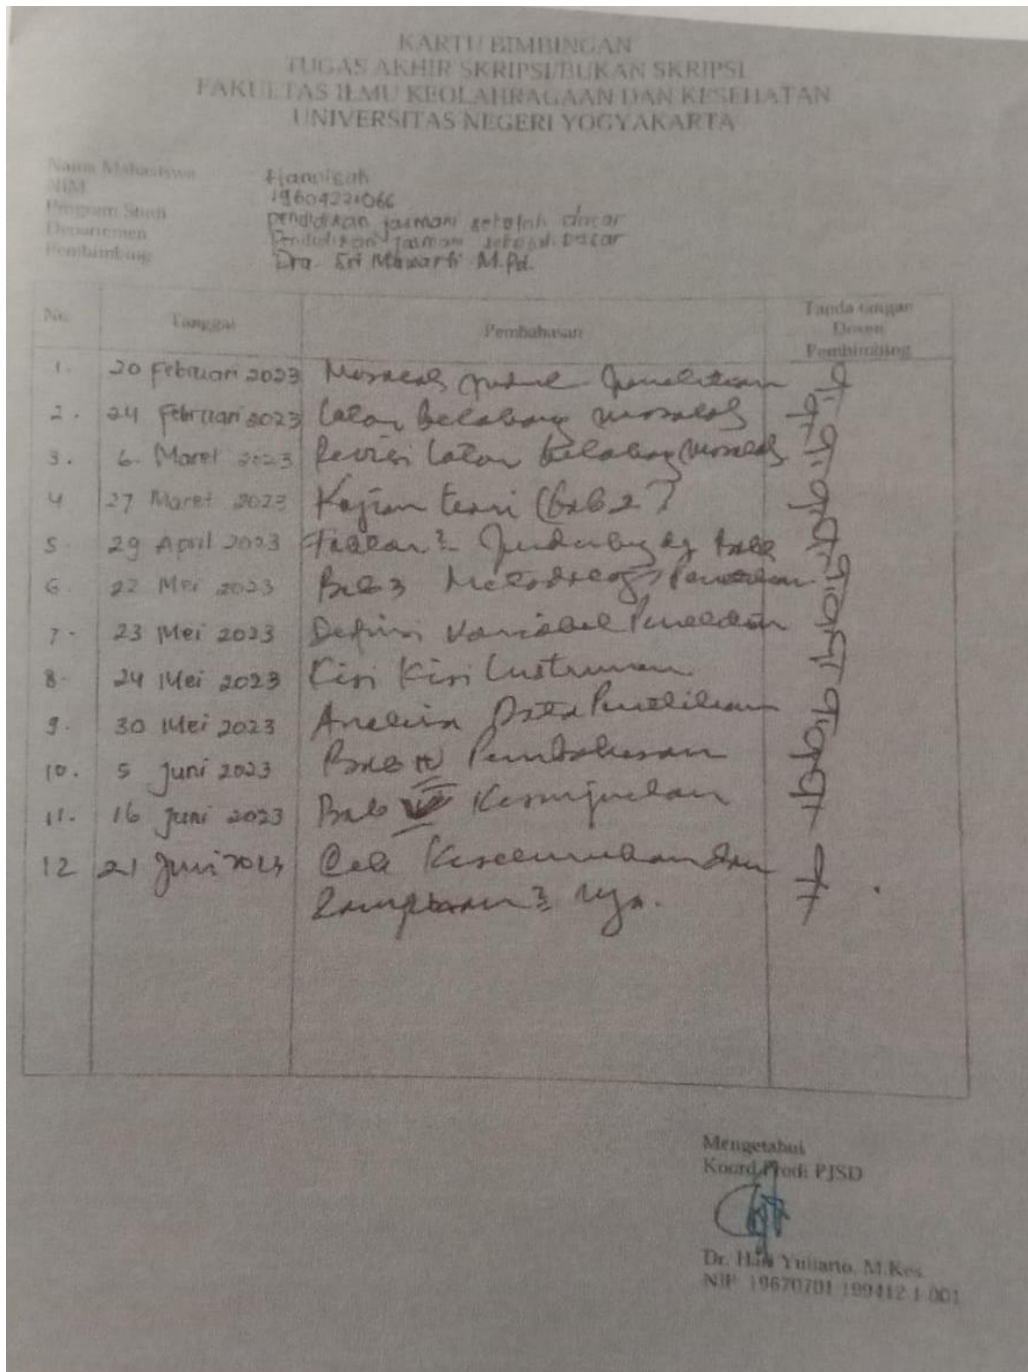 KARTU BIMBINGAN
TUGAS AKHIR SKRIPSI/BUKAN SKRIPSI
FAKULTAS ILMU KEOLAHRAGAAN DAN KESEHATAN
UNIVERSITAS NEGERI YOGYAKARTA
Nama Mahasiswa
NIM 19604221066
Program Studi pendidikan jasmani sekolah dasar
Departemen Pendidikan jasmani sekolah Dasar
Pembimbing Dra. Sri Mawarti M.Pd.
No. Tanggal Pembahasan Tanda tangan
Dosen
Pembimbing
1. 20 Februari 2023 penelitian
2. 24 Februari 2023 Latar Belakang masalah
3. 6 Maret 2023 Revisi Latar Belakang masalah
4 27 Maret 2023 Kajian teori (bab 2)
5. 29 April 2023
6. 22 Mei 2023 Bab 3 Metodologi Penelitian
7. 23 Mei 2023 Definisi Variabel Penelitian
8. 24 Mei 2023 Kisi Kisi Instrumen
9. 30 Mei 2023 Analisa Data Penelitian
10. 5 Juni 2023 Bab IV Pembahasan
11. 16 Juni 2023 Bab V Kesimpulan
12 21 Juni 2023 Cek Keseluruhan dan
Lampiran2 nya.
Mengetahui
Koord Prodi PJSD
Dr. Hari Yulianto, M.Kes.
NIP. 19670701 199412 1 001